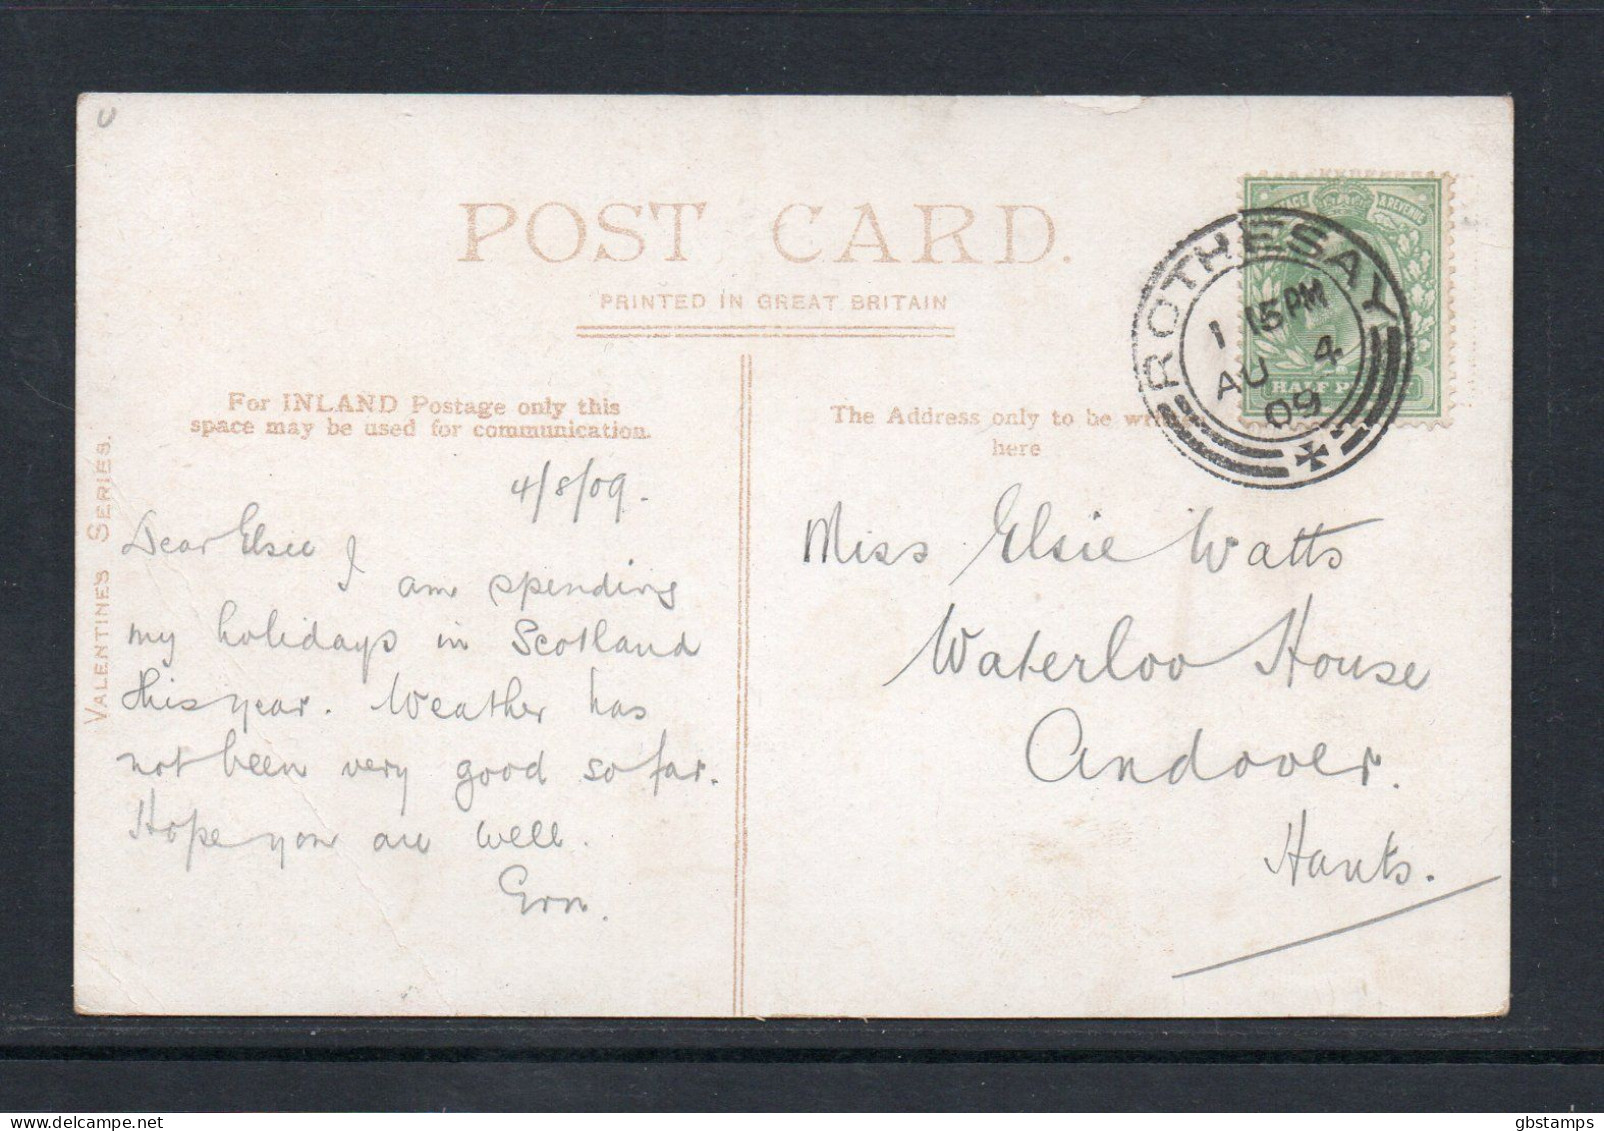 POST CARD.
PRINTED IN GREAT BRITAIN
For INLAND Postage only this
space may be used for communication.
The Address only to be
here
VALENTINE'S SERIES.
POSTAGE & REVENUE
HALF PENNY
ROTHESAY
1 15PM
AU 4
09
4/8/09.
Dear Elsie
I am spending
my holidays in Scotland
this year. Weather has
not been very good so far.
Hope you are well.
Ern.
Miss Elsie Watts
Waterloo House
Andover.
Hants.
gbstamps